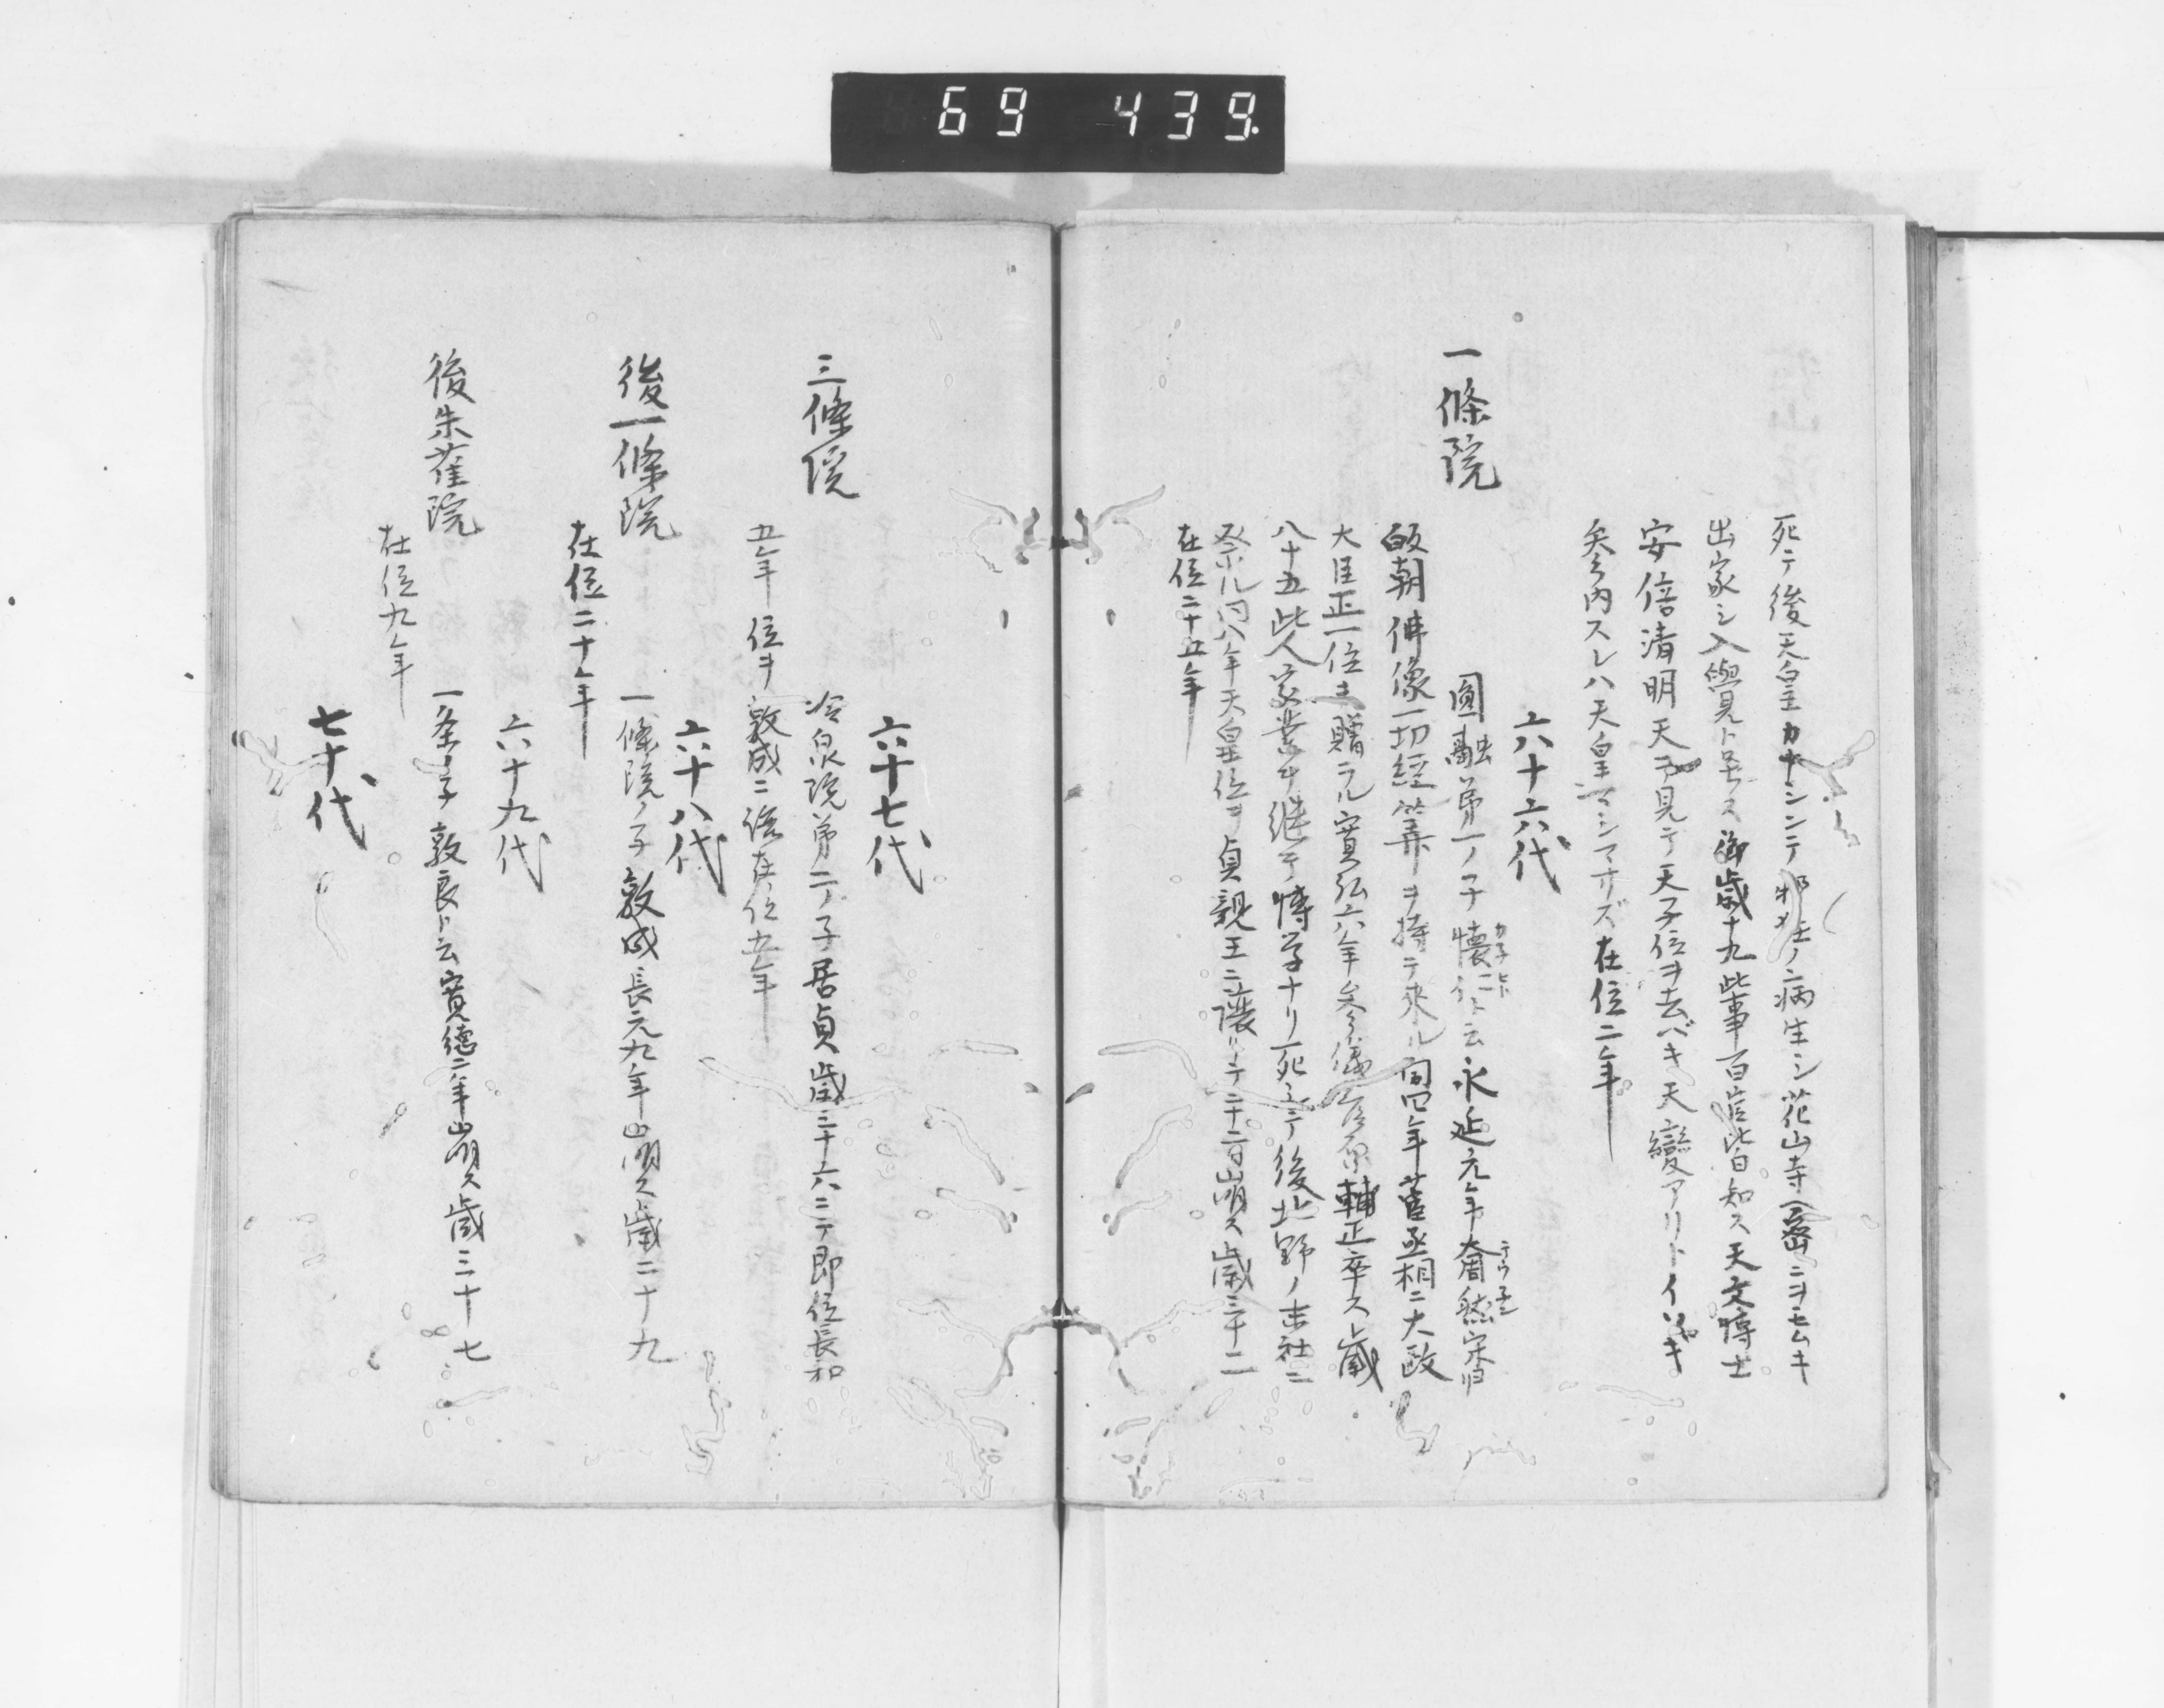 69 439.
死テ後天皇カナシンテ邪狂ノ病生シ花山寺ヘ密ニヲモムキ
出家シ入覺ト号ス御歳十九此事百官皆知ス天文博士
安倍清明天ヲ見テ天子位ヲ去バキ天變アリトイソキ
参内スレハ天皇マシマサズ在位二年
六十六代
一條院
圓融第一ノ子懐仁ト云永延元年奝然宋ヨリ
皈朝佛像一切経等ヲ持テ來ル同四年菅丞相ニ大政
大臣正一位ヲ贈ラル寛弘六年参儀菅原輔正卒ス歳
八十五此人家業ヲ継テ博学ナリ死シテ後北野ノ末社ニ
祭ル同八年天皇位ヲ貞親王ニ讓リテ二十二日崩ス歳三十二
在位二十五年
六十七代
三條院
冷泉院第二ノ子居貞歳三十六ニテ即位長和
五年位ヲ敦成ニ譲在位五年
六十八代
後一條院
一條院ノ子敦成長元九年崩ス歳二十九
在位二十年
六十九代
後朱雀院
一条ノ子敦良ト云寛徳二年崩ス歳三十七
在位九年
七十代